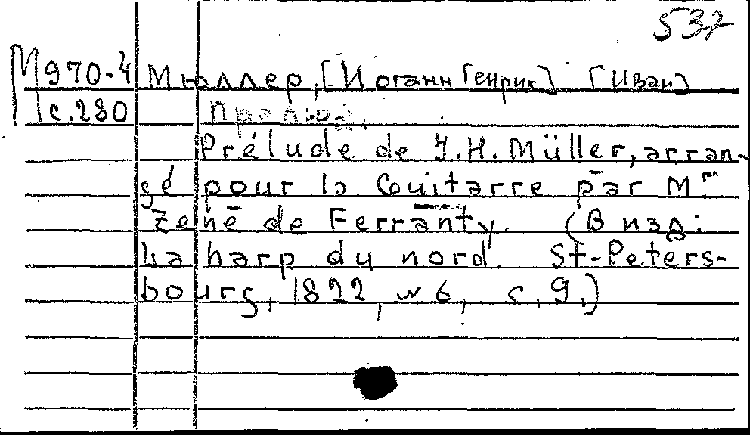 532
М970-4 Мюллер, [Иоганн Генрих] [Иван]
с.280 Прелюд.
Prélude de J.H. Müller, arran-
gé pour la Guitarre par Mr
Zené de Ferranty. (В изд:
La harp du nord. St-Peters-
bourg, 1822, N 6, с. 9.)